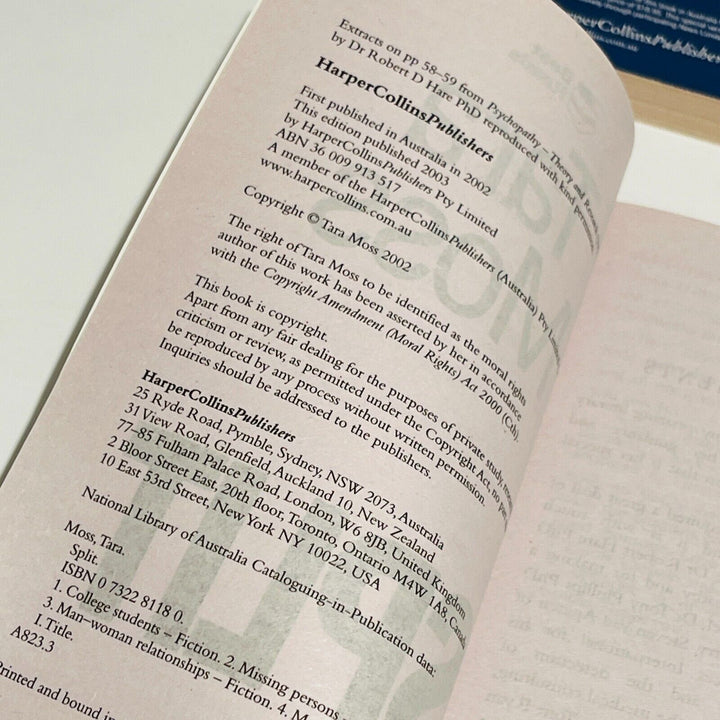 Extracts on pp 58–59 from Psychopathy – Theory and
by Dr Robert D Hare PhD reproduced with kind permission
HarperCollinsPublishers
First published in Australia in 2002
This edition published 2003
by HarperCollinsPublishers Pty Limited
ABN 36 009 913 517
A member of the HarperCollinsPublishers (Australia) Pty Limited
www.harpercollins.com.au
Copyright © Tara Moss 2002
The right of Tara Moss to be identified as the moral rights
author of this work has been asserted by her in accordance
with the Copyright Amendment (Moral Rights) Act 2000 (Cth).
This book is copyright.
Apart from any fair dealing for the purposes of private study,
criticism or review, as permitted under the Copyright Act, no
be reproduced by any process without written permission.
Inquiries should be addressed to the publishers.
HarperCollinsPublishers
25 Ryde Road, Pymble, Sydney, NSW 2073, Australia
31 View Road, Glenfield, Auckland 10, New Zealand
77–85 Fulham Palace Road, London, W6 8JB, United Kingdom
2 Bloor Street East, 20th floor, Toronto, Ontario M4W 1A8, Canada
10 East 53rd Street, New York NY 10022, USA
National Library of Australia Cataloguing-in-Publication data:
Moss, Tara.
Split.
ISBN 0 7322 8118 0.
1. College students – Fiction. 2. Missing persons –
3. Man–woman relationships – Fiction. 4.
I. Title.
A823.3
Printed and bound in